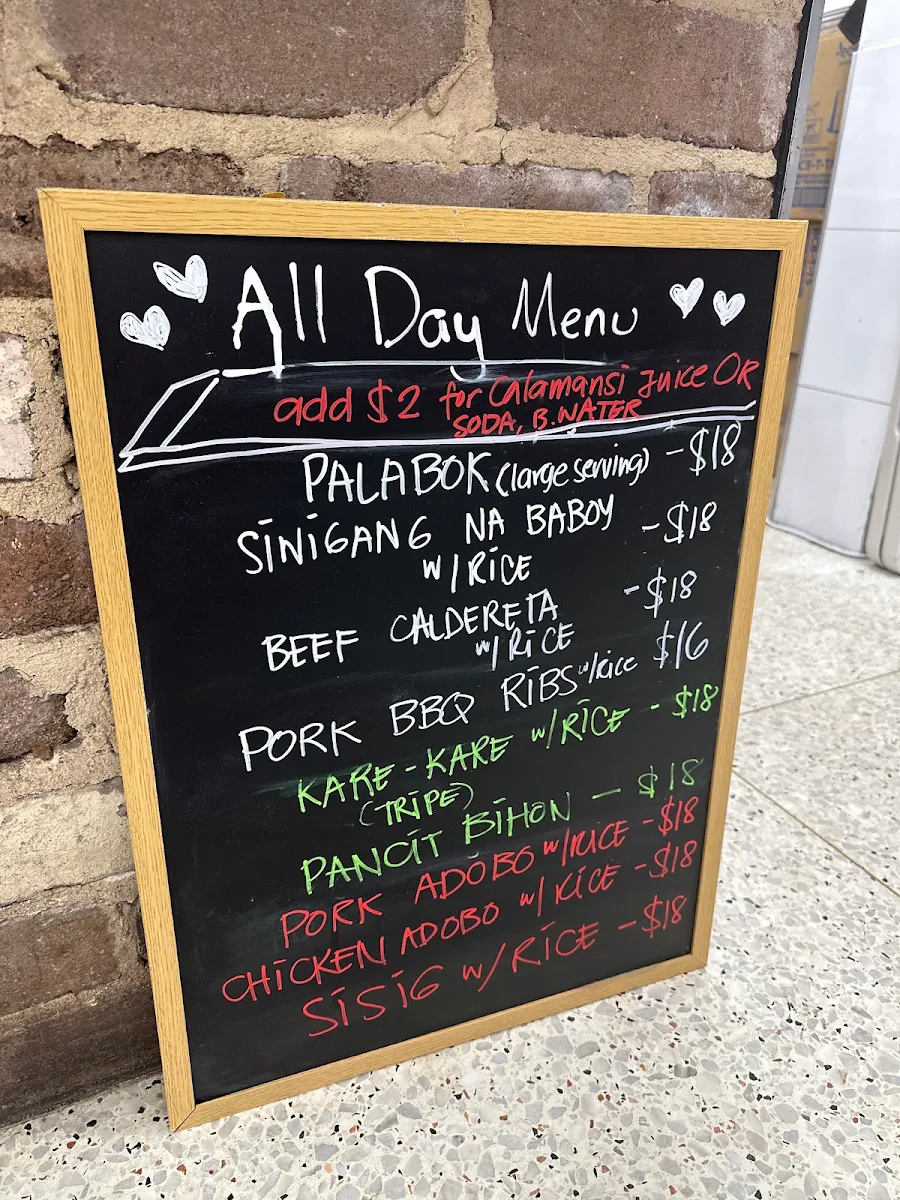 All Day Menu
add $2 for Calamansi Juice OR
SODA, B. WATER
PALABOK (large serving) - $18
SINIGANG NA BABOY - $18
W/RICE
BEEF CALDERETA - $18
W/RICE
PORK BBQ RIBS w/rice $16
KARE-KARE W/RICE - $18
(TRIPE)
PANCIT BIHON - $18
PORK ADOBO W/RICE - $18
CHICKEN ADOBO W/RICE - $18
SISIG W/RICE - $18